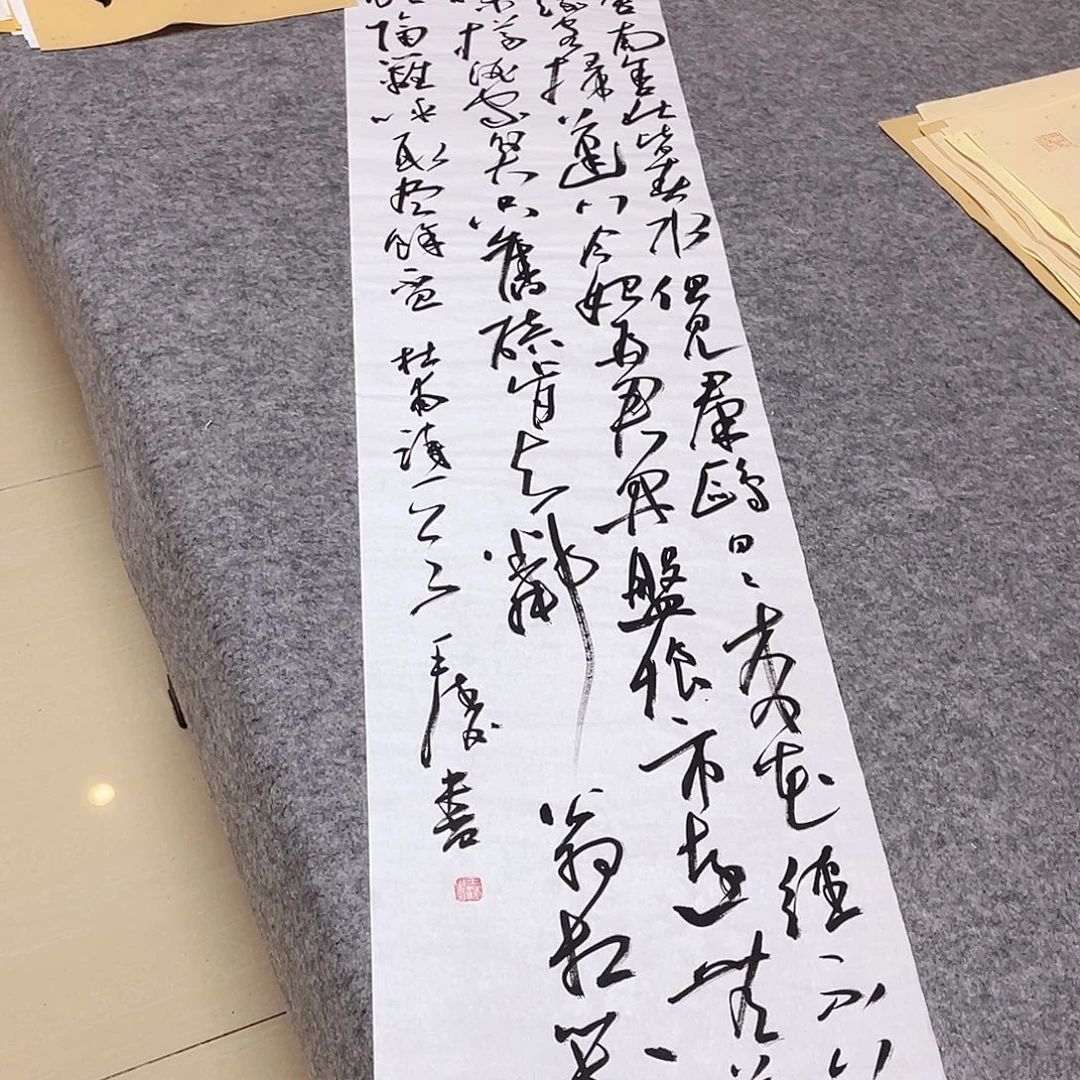 舍南舍北皆春水但見羣鷗日〻來花徑不曾
緣客掃蓬門今始為君開開盤飧市遠無兼
味樽酒家貧只舊醅肯與鄰翁相對
隔籬呼取盡餘杯 杜甫詩一 書